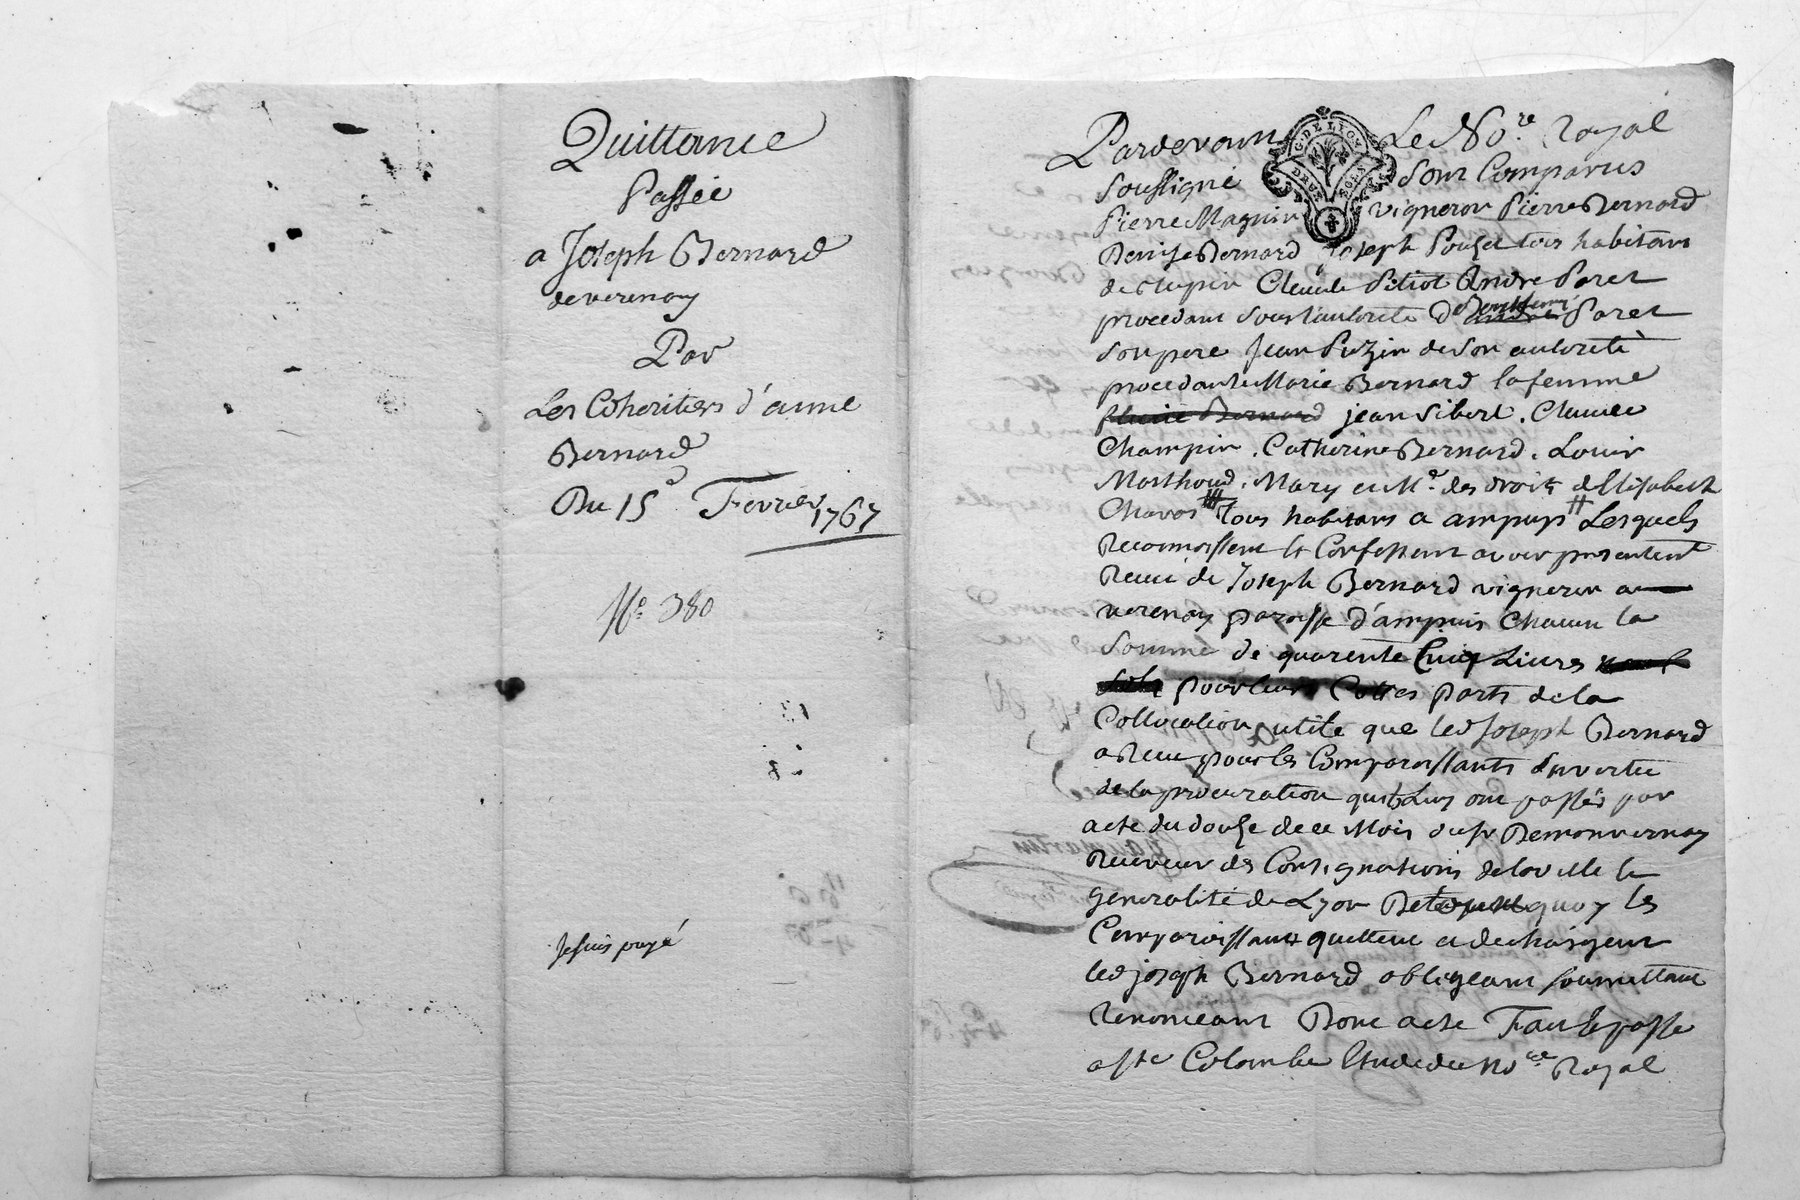 Quittance
Passée
a Joseph Bernard
de verenay
Par
Les Coheritiers d'anne
Bernard
Du 15e Fevrier 1767
No. 380
Je suis payé
Pardevant Le Nore Royal
Soussigné Sont Comparus
Pierre Magnin vigneron Pierre Bernard
Denise Bernard Joseph Pouzet tous habitans
de stupin Claude Pitiot Andre Paret
procedant sous l'autorité D Paret
son pere Jean Puzin de son autorité
procedante Marie Bernard la femme
Bernard jean Sibert. Claude
Champin. Catherine Bernard. Louis
Masthoud. Mary et Me. des droits d'Elisabeth
Chavas Tous habitans a ampuys Lesquels
Reconnoissent et Confessent avoir presentemt
Receu de Joseph Bernard vigneron a
verenay paroisse d'ampuis Chacun la
Somme de quarente Cinq Livres
pour leurs Cottes parts de la
Collocation utile que led Joseph Bernard
a Receu pour les Comparoissants En vertu
de la procuration quils Luy ont passés par
acte du douze de ce Mois du sr Demonvernay
Receveur des Consignations de la ville et
generalité de Lyon De quoy les
Comparoissants quittent et dechargent
led joseph Bernard obligeant soumettant
Renonceant Dont acte Fait et passé
a ste Colombe Etude du Nore Royal
G. DE LYON